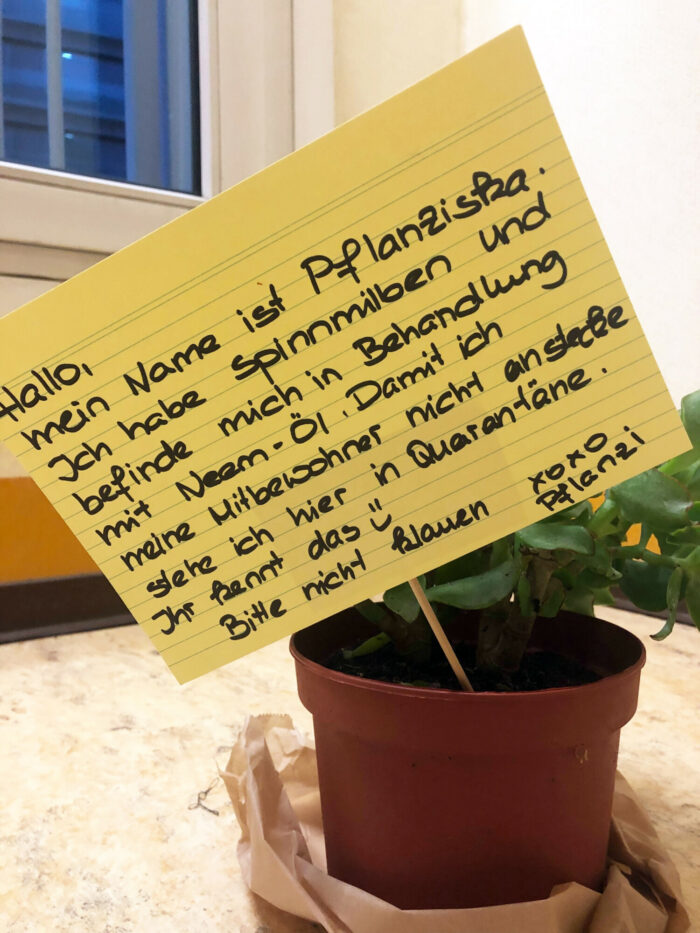 Hallo,
mein Name ist Pflanziska.
Ich habe Spinnmilben und
befinde mich in Behandlung
mit Neem-Öl. Damit ich
meine Mitbewohner nicht anstecke
stehe ich hier in Quarantäne.
Ihr kennt das ü
Bitte nicht klauen xoxo
Pflanzi